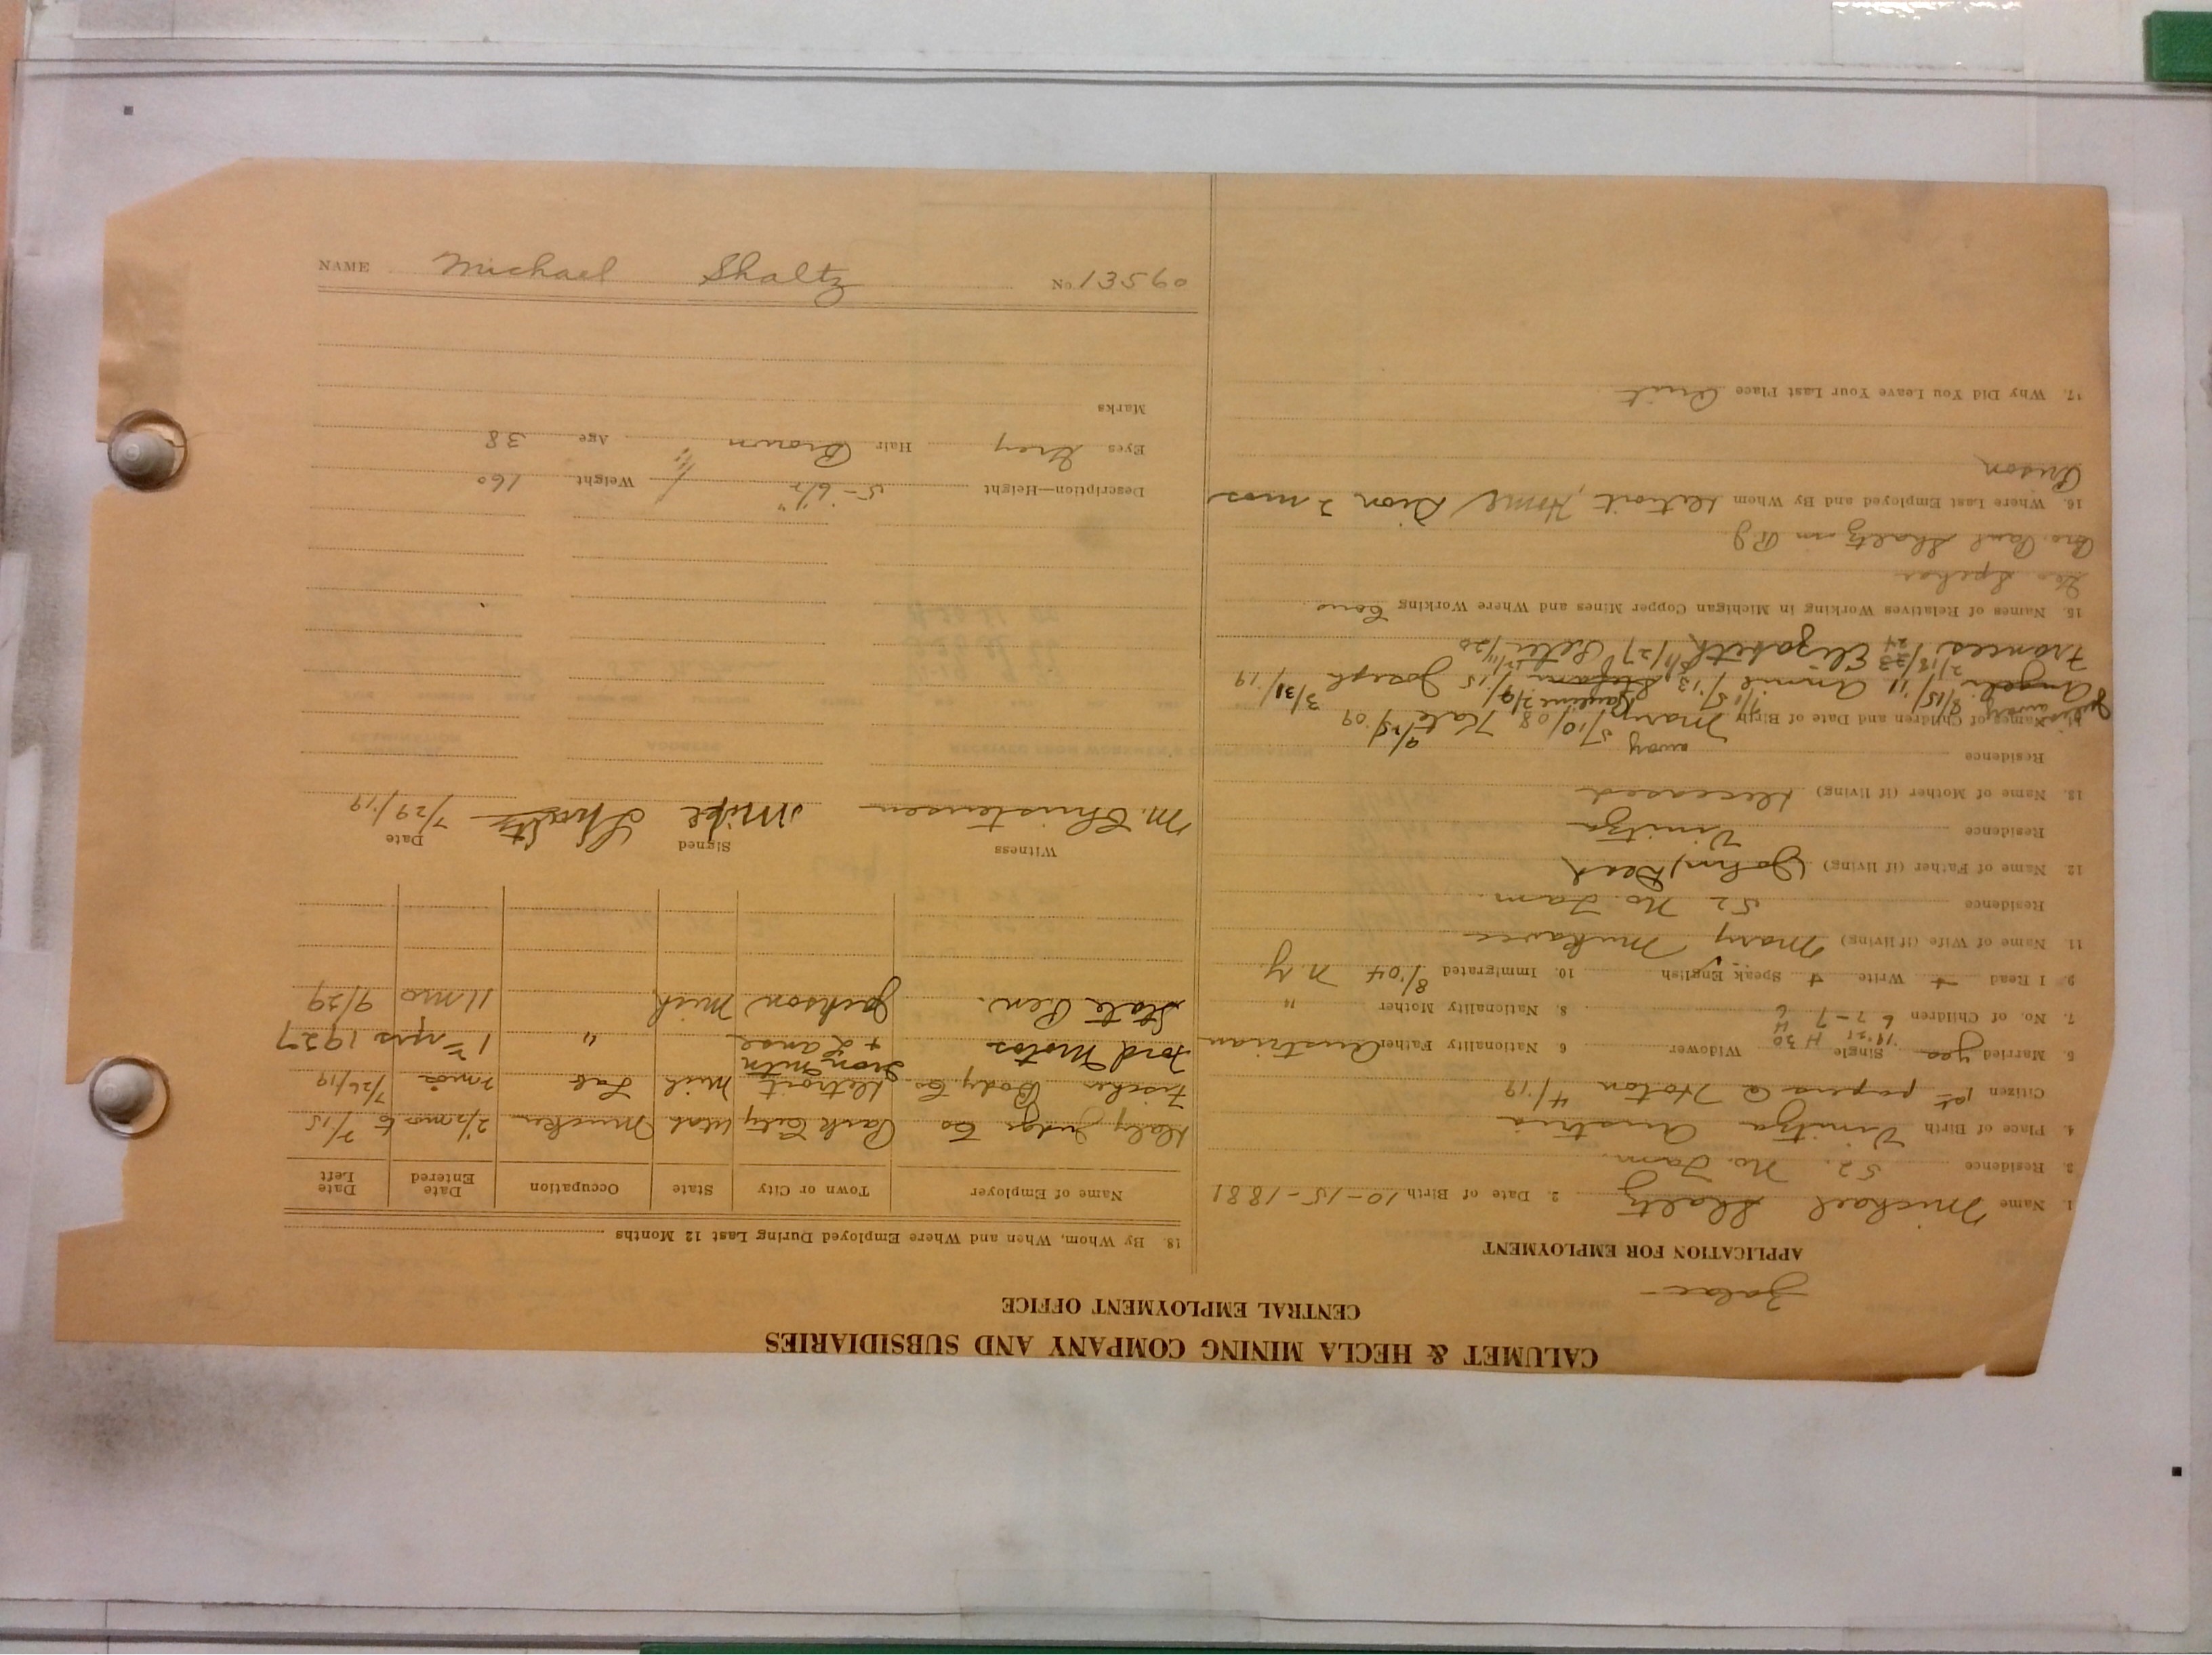 NAME Michael Shaltz No. 13560
CALUMET & HECLA MINING COMPANY AND SUBSIDIARIES
CENTRAL EMPLOYMENT OFFICE
APPLICATION FOR EMPLOYMENT
1. Name Michael Shaltz 2. Date of Birth 10-15-1881
3. Residence 52 No. Tam.
4. Place of Birth Vinitza Austria
Citizen 1st papers @ Hoton 4/19
5. Married yes Single Widower 6. Nationality Father Austrian
7. No. of Children 6 - 7 - 7 8. Nationality Mother "
9. I Read + Write + Speak English 10. Immigrated 8/04 N.Y.
11. Name of Wife (if living) Mary
Residence 52 No. Tam.
12. Name of Father (if living) John, Dead
Residence Vinitza
13. Name of Mother (if living) Deceased
Residence
away
14. Names of Children and Date of Birth Mary 5/10/08 Kate 9/25/09
Angeli 8/15/11 Annie 7/15/13 Stefani 15 Joseph 3/31/19
Frances 2/18/23 Elizabeth 27 Peter 20
15. Names of Relatives Working in Michigan Copper Mines and Where Working Cous
Geo Spehar
Bro. Paul Shaltz in R J
16. Where Last Employed and By Whom Detroit, 2 mos
Prison
17. Why Did You Leave Your Last Place Quit
18. By Whom, When and Where Employed During Last 12 Months
Name of Employer Town or City State Occupation Date Entered Date Left
Daly Judge Co Park City Utah Mucker 2 1/2 mo 7/15
Fischer Body Co. Detroit Mich Lab 2 mos 7/26/19
Ford Motor Iron Mtn + Lanse " 1 yrs 1927
State Pen. Jackson Mich 11 mo 9/29
Witness Signed Date
M. Christensen Mike Shaltz 7/29/19
Description—Height 5-6 1/2" Weight 160
Eyes Grey Hair Brown Age 38
Marks